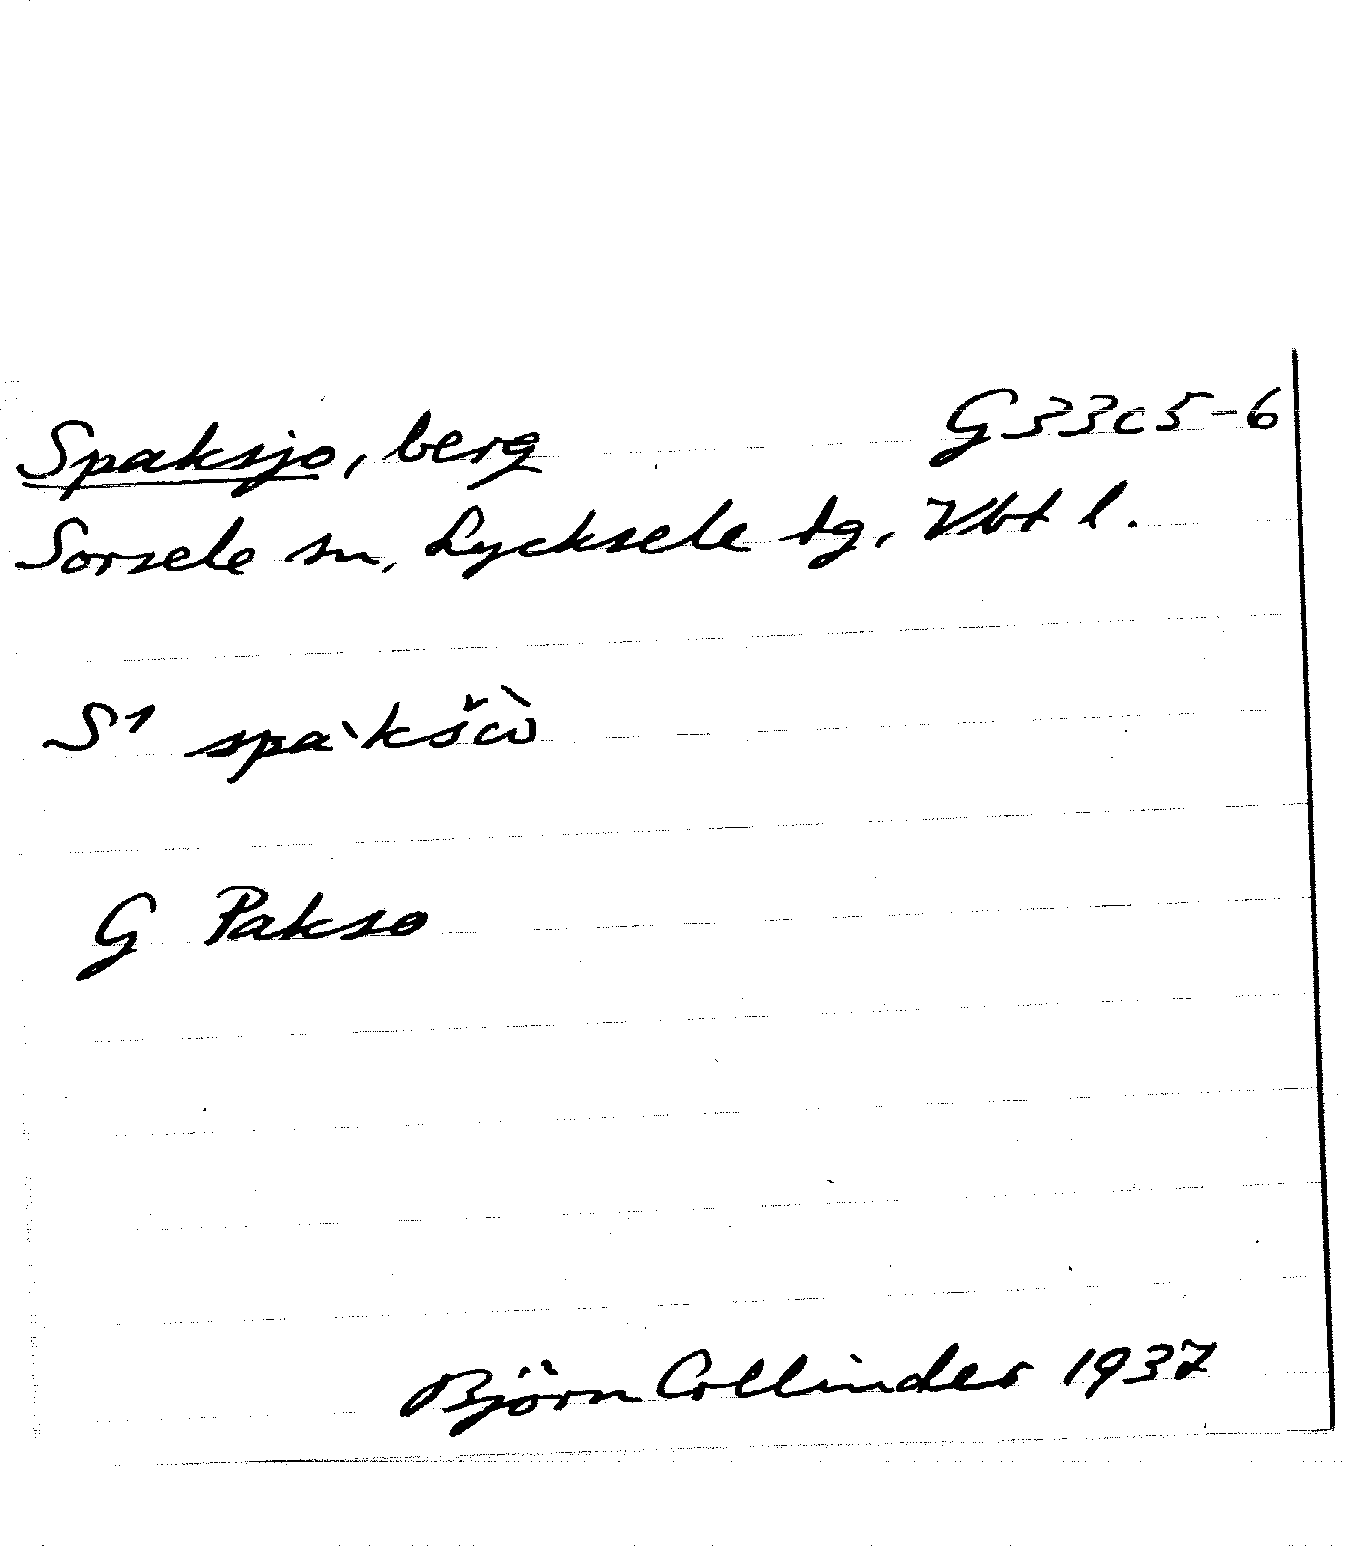 Spaksjo, berg G33c5-6
Sorsele sn, Lycksele tg, Vbt l.
S1 spaˋkšὼ
G Pakso
Björn Collinder 1937